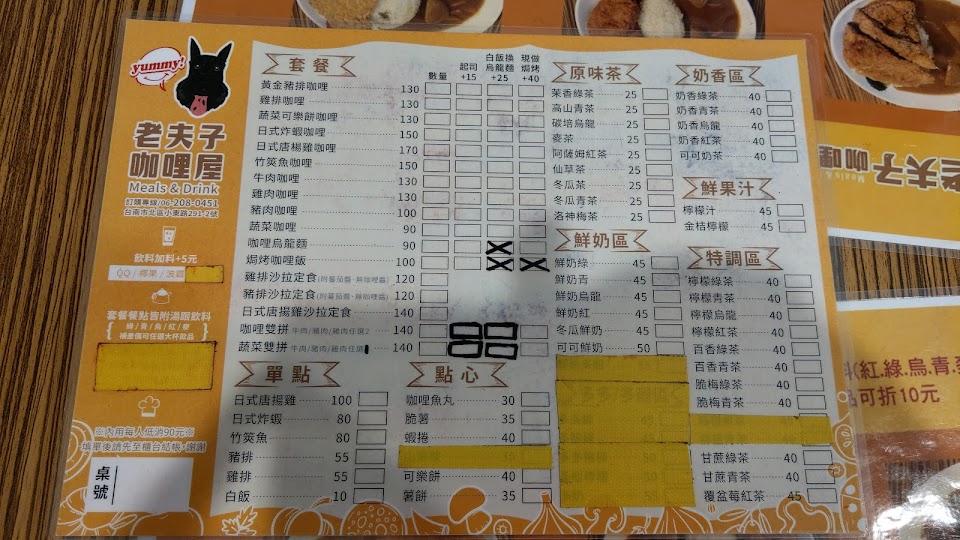 yummy!
老夫子
咖哩屋
Meals & Drink
訂購專線/06-208-0451
台南市北區小東路291-2號
飲料加料+5元
QQ / 椰果 / 波霸
套餐餐點皆附湯跟飲料
綠/青/烏/紅/麥
補差價可任選大杯飲品
※內用每人低消90元※
填單後請先至櫃台結帳,謝謝
桌號
套餐
數量
起司+15
白飯換烏龍麵+25
現做焗烤+40
黃金豬排咖哩 130
雞排咖哩 130
蔬菜可樂餅咖哩 130
日式炸蝦咖哩 150
日式唐揚雞咖哩 170
竹筴魚咖哩 150
牛肉咖哩 130
雞肉咖哩 130
豬肉咖哩 100
蔬菜咖哩 90
咖哩烏龍麵 90
焗烤咖哩飯 100
雞排沙拉定食(附蕃茄醬,無咖哩醬) 120
豬排沙拉定食(附蕃茄醬,無咖哩醬) 120
日式唐揚雞沙拉定食 140
咖哩雙拼 牛肉/豬肉/雞肉任選2 140
蔬菜雙拼 牛肉/豬肉/雞肉任選 140
單點
日式唐揚雞 100
日式炸蝦 80
竹筴魚 80
豬排 55
雞排 55
白飯 10
點心
咖哩魚丸 30
脆薯 35
蝦捲 40
可樂餅 40
薯餅 35
原味茶
茉香綠茶 25
高山青茶 25
碳培烏龍 25
麥茶 25
阿薩姆紅茶 25
仙草茶 25
冬瓜茶 25
冬瓜青茶 25
洛神梅茶 25
鮮奶區
鮮奶綠 45
鮮奶青 45
鮮奶烏龍 45
鮮奶紅 45
冬瓜鮮奶 45
可可鮮奶 50
奶香區
奶香綠茶 40
奶香青茶 40
奶香烏龍 40
奶香紅茶 40
可可奶茶 40
鮮果汁
檸檬汁 45
金桔檸檬 45
特調區
檸檬綠茶 40
檸檬青茶 40
檸檬烏龍 40
檸檬紅茶 40
百香綠茶 40
百香青茶 40
脆梅綠茶 40
脆梅青茶 40
甘蔗綠茶 40
甘蔗青茶 40
覆盆莓紅茶 45
老夫子咖哩
(紅.綠.烏.青.
可折10元